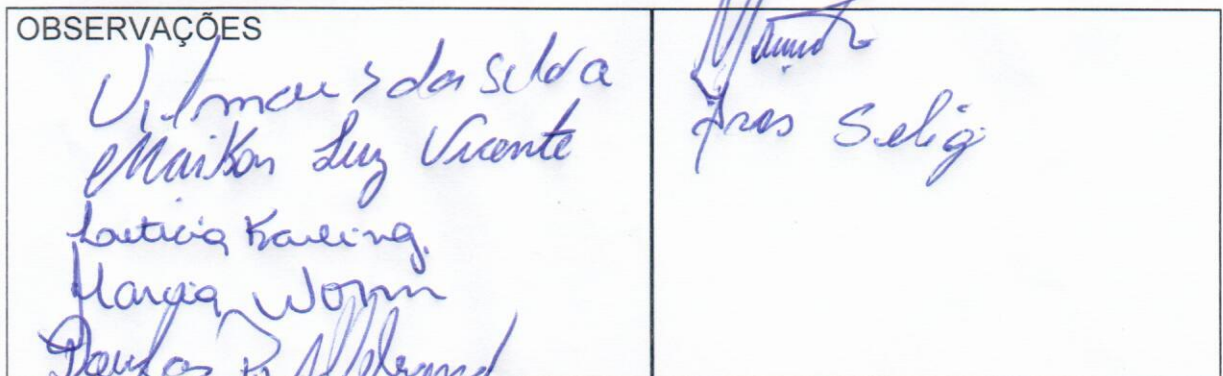 OBSERVAÇÕES
Vilmar S da Silva
Maikon Luz Vicente
Laeticia Karling.
Marcia Worm
Douglas R.
Selig